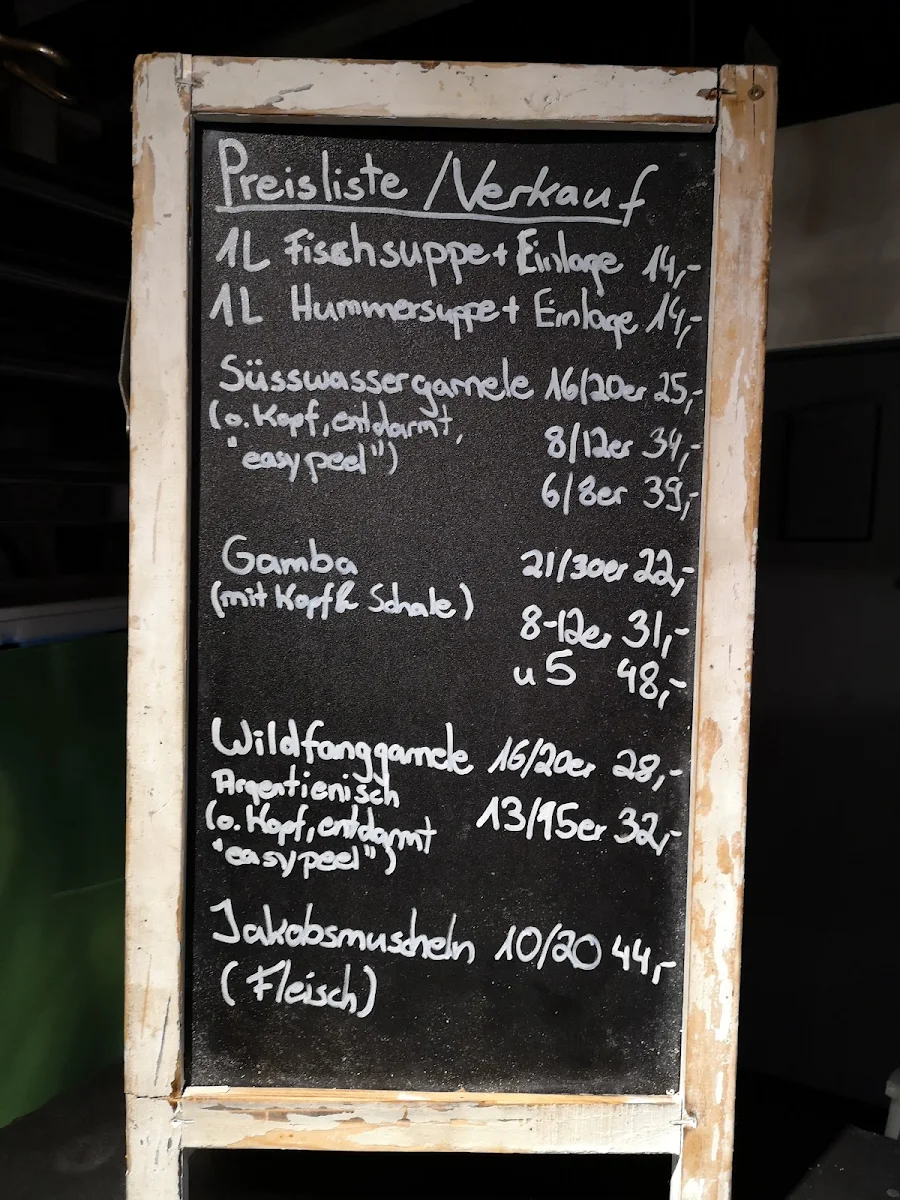 Preisliste / Verkauf
1L Fischsuppe + Einlage 14,-
1L Hummersuppe + Einlage 14,-
Süsswassergarnele 16/20er 25,-
(o. Kopf, entdarmt, 8/12er 34,-
"easy peel") 6/8er 39,-
Gamba 21/30er 22,-
(mit Kopf & Schale) 8-12er 31,-
u 5 48,-
Wildfanggarnele 16/20er 28,-
Argentienisch
(o. Kopf, entdarmt 13/15er 32,-
"easy peel")
Jakobsmuscheln 10/20 44,-
(Fleisch)